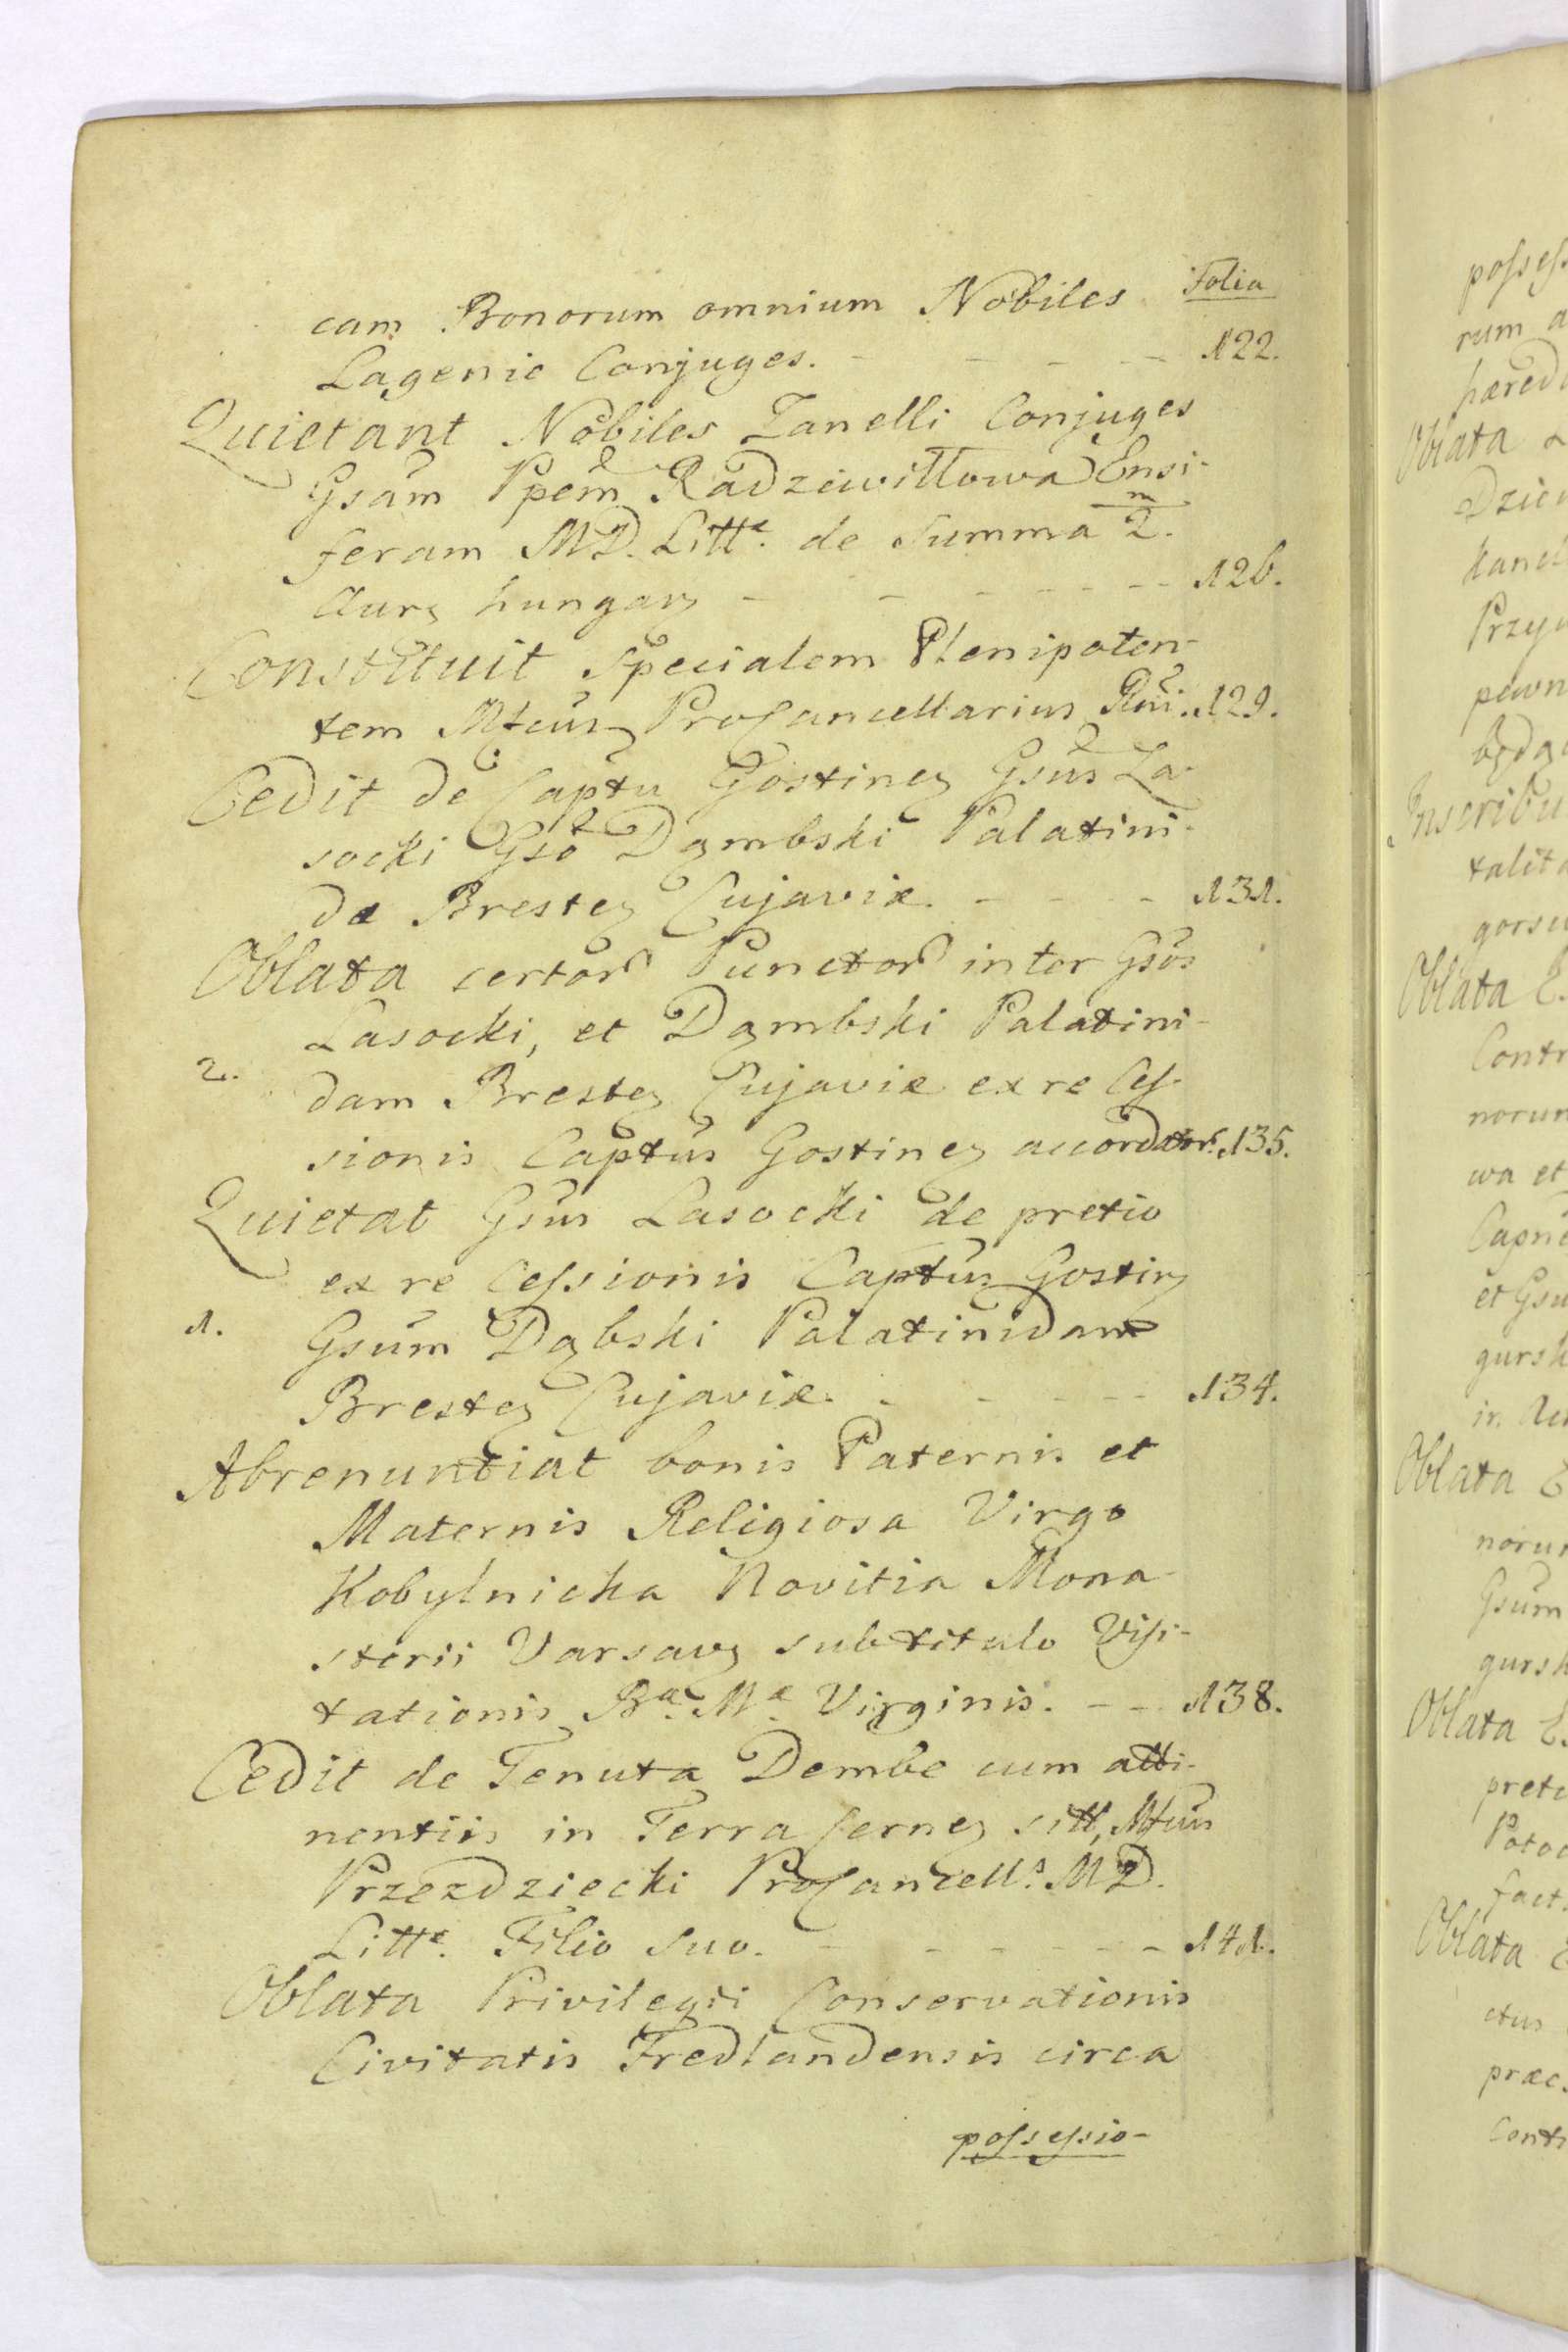 Folia
cam Bonorum omnium Nobiles
Lagenie Conjuges. - - - - - 122.
Quietant Nobiles Zanelli Conjuges
Gsam Ppem Radziwiłłowa Ensi-
feram MD. Littæ. de Summa 2.m
Aurz hungarz - - - - - - 126.
Constituit specialem Plenipoten-
tem Mfcus ProCancellarius Rni. 129.
Cedit de Captu Gostinez Gsus La-
socki Gso Dąmbski Palatini-
dæ Brestez Cujaviæ. - - - - 131.
Oblata certor Punctor inter Gsos
Lasocki, et Dąmbski Palatini-
2. dam Brestez Cujaviæ ex re Ces-
sionis Captus Gostinez accordator. 135.
Quietat Gsus Lasocki de pretio
ex re Cessionis Captus Gostinz
1. Gsum Dąbski Palatinidam
Brestez Cujaviæ. - - - - 134.
Abrenuntiat bonis Paternis et
Maternis Religiosa Virgo
Kobylnicka Novitia Mona-
sterii Varsavz sub titulo Visi-
tationis Bæ. Mæ. Virginis. - - 138.
Cedit de Tenuta Dembe cum atti-
nentiis in Terra Cernez sitt, Mfcus
Przezdziecki ProCancells. MD.
Littæ. Filio suo. - - - - - - 141.
Oblata Privilegii Conservationis
Civitatis Fredlandensis circa
possessio-
rum
Oblata
Inscribu
Oblata
Oblata
Gsum
Oblata
Oblata